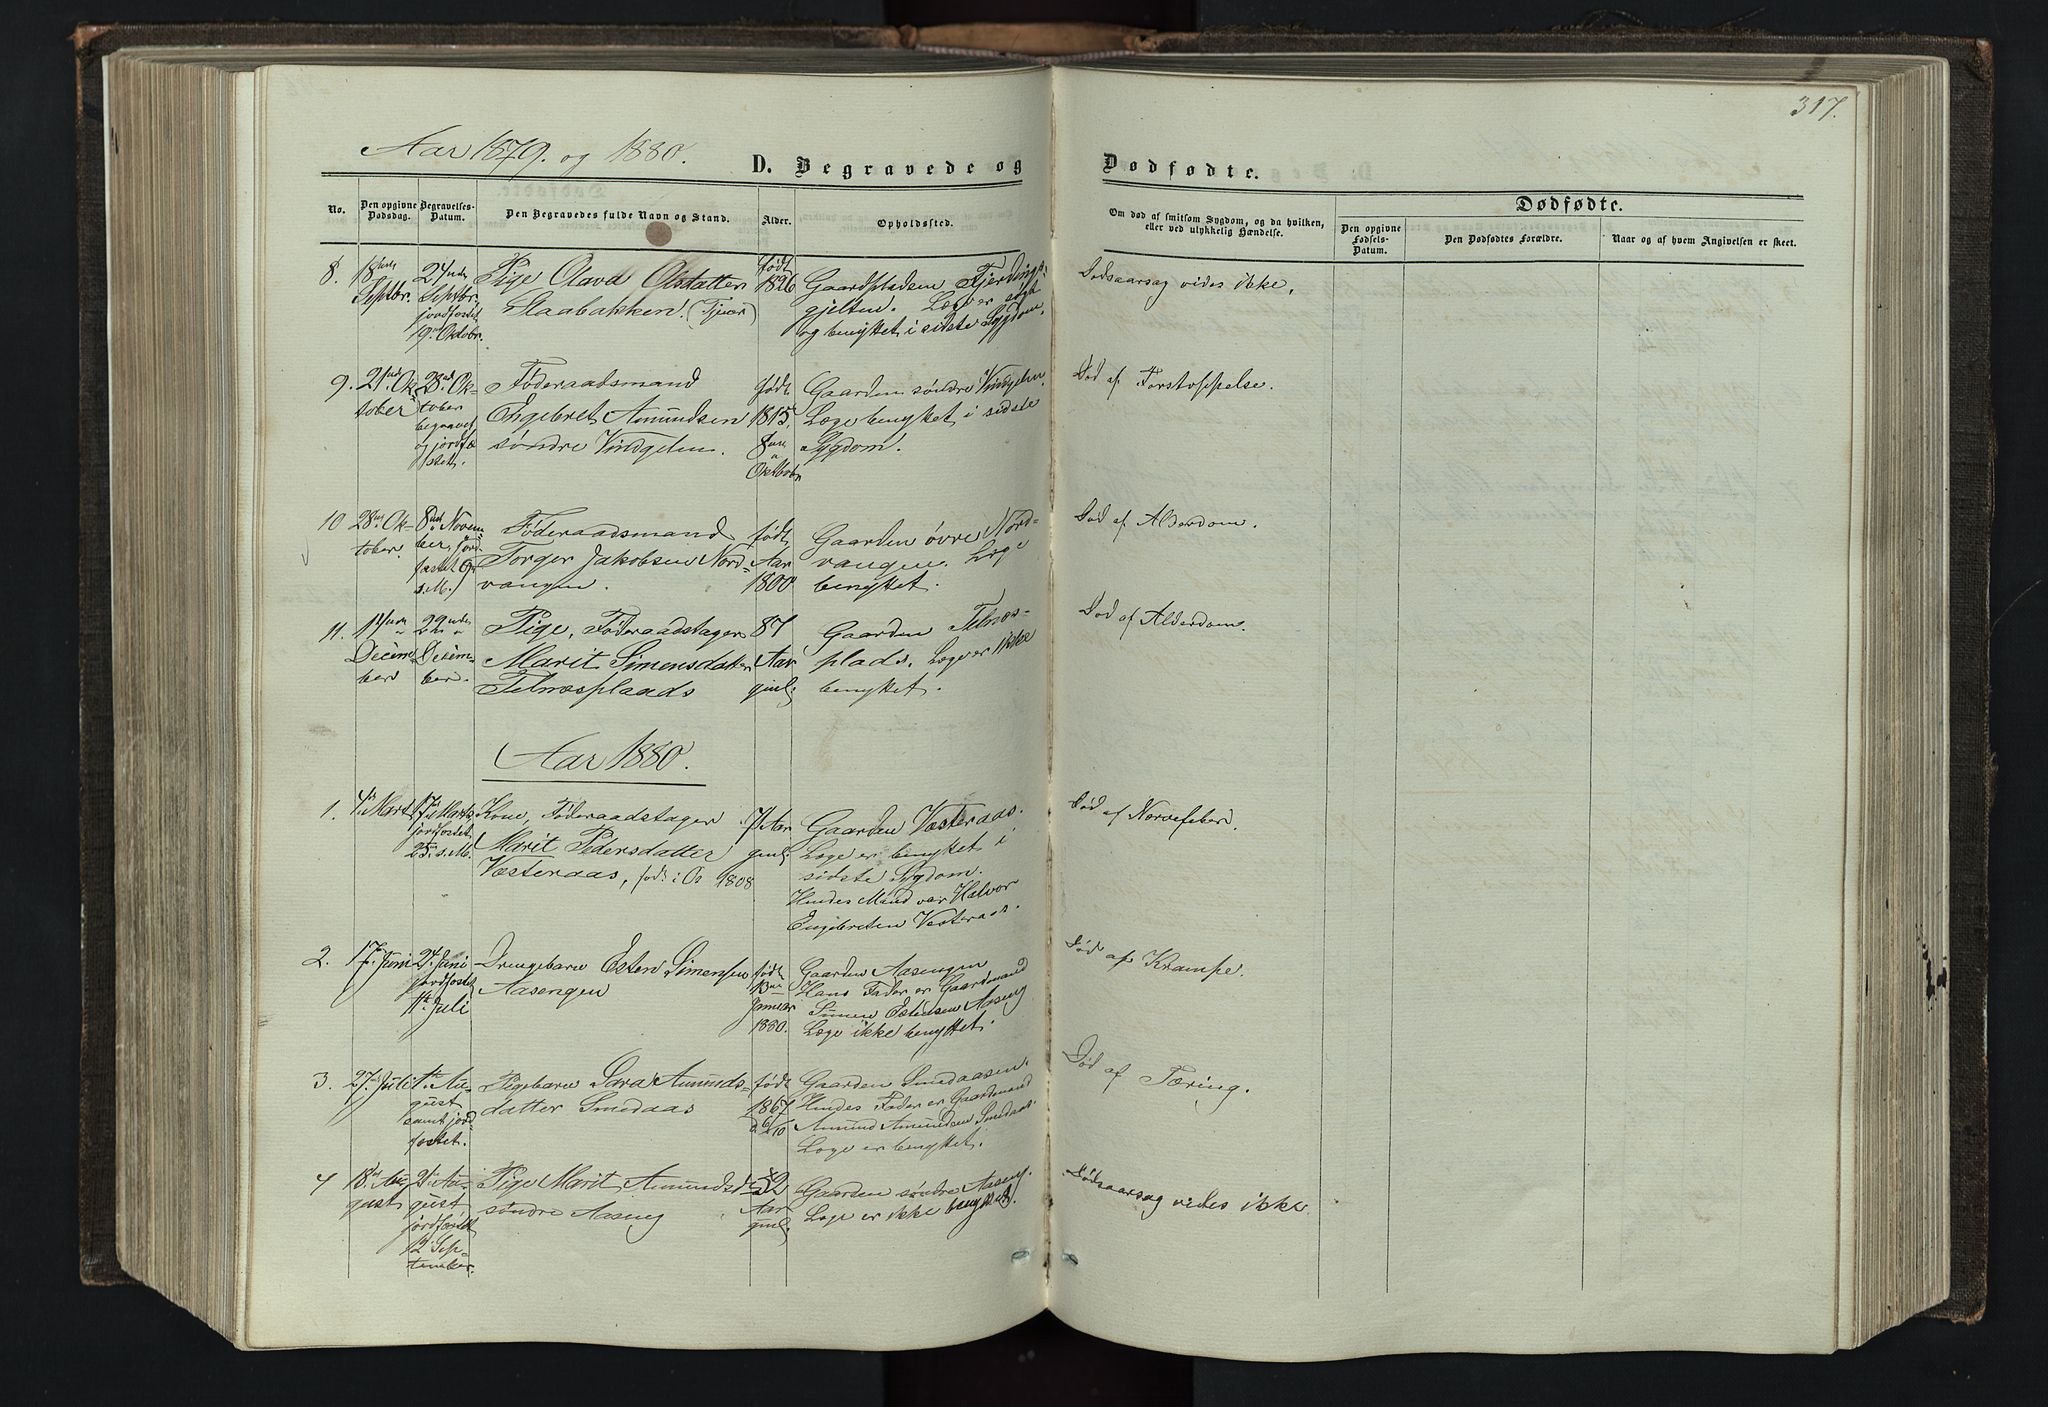 317.
Aar 1879. og 1880.
D. Begravede og
Dødfødte.
No.
Den opgivne Dødsdag.
Begravelses-Datum.
Den Begravedes fulde Navn og Stand.
Alder.
Opholdssted.
Om død af smitsom Sygdom, og da hvilken,
eller ved ulykkelig Hændelse.
Dødfødte.
Den opgivne Fødsels-Datum.
Den Dødfødtes Forældre.
Naar og af hvem Angivelsen er skeet.
8.
18de
Septbr.
24de
Septbr.
jordfæstet
19. Oktobr.
Pige Olava Olsdatter
Staabakken. (Tjuar)
født
1826
Gaardpladsen Fjerdings-
gjelten. Læge er søgt
og benyttet i sidste Sygdom.
Dødsaarsag vides ikke.
9.
21de Ok-
tober
28de Ok-
tober
begravet
og jordfæ-
stet.
Føderaadsmand
Engebret Amundsen
søndre Vindgelen.
født
1815.
8de
Oktober
Gaarden søndre Vindgelen.
Læge benyttet i sidste
Sygdom.
Død af Forstoppelse.
10
28de Ok-
tober.
8de Novem-
ber, jord-
fæstet 9
s. M.)
Føderaadsmand
Torger Jakobsen Nord-
vangen.
født
Aar
1800
Gaarden øvre Nord-
vangen. Læge
benyttet.
Død af Alderdom.
11.
Decem-
ber
22nde
Decem-
ber.
Pige, Føderaadstager
Marit Simensdatter
Telnæsplaads
87
Aar
gml.
Gaarden Telnæs-
plads. Læge er ikke
benyttet.
Død af Alderdom.
Aar 1880.
1.
4. Marts
17. Marts
jordfæstet
25. s. M.
Kone, Føderaadstager
Marit Pedersdatter
Væsteraas, født i Os 1808
71 Aar
gml.
Gaarden Væsteraas.
Læge er benyttet i
sidste Sygdom.
Hendes Mand var Halvor
Engebretsen Vesteraas.
Død af Nervefeber.
2.
17. Juni
24. Juni
jordfæstet
11. Juli
Drengebarn Esten Simensen
Aasengen
født
13de
Januar
1880.
Gaarden Aasengen
Hans Fader er Gaardmand
Simen Estensen Aaseng
Læge ikke benyttet.
Død af Krampe.
3.
27. Juli
1ste Au-
gust
samt jord-
fæstet.
Pigebarn Sara Amunds-
datter Smedaas
født
1867
d. 6/10
Gaarden Smedaasen.
Hendes Fader er Gaardmand
Amund Amundsen Smedaas.
Læge er benyttet.
Død af Tæring.
4
18. Au-
gust
21. Au-
gust
jordfæstet
12 Sep-
tember.
Pige Marit Amundsd.
søndre Aaseng
Aar
gml.
Gaarden søndre Aaseng.
Læge er ikke benyttet.
Dødsaarsag vides ikke.